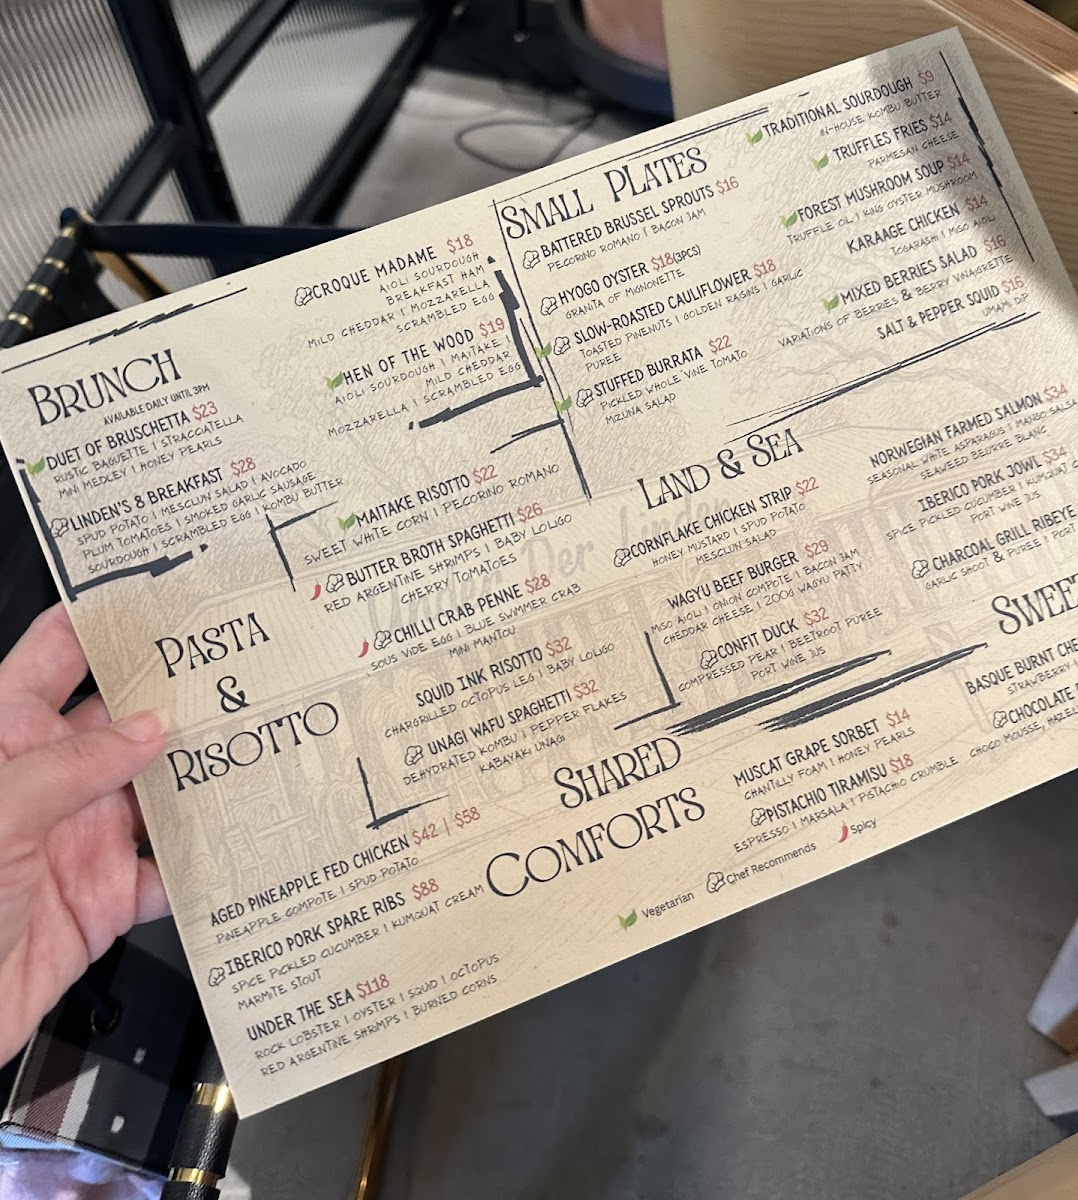 BRUNCH
AVAILABLE DAILY UNTIL 3PM
DUET OF BRUSCHETTA $23
RUSTIC BAGUETTE | STRACCIATELLA
MINI MEDLEY | HONEY PEARLS
LINDEN'S 8 BREAKFAST $28
SPUD POTATO | MESCLUN SALAD | AVOCADO
PLUM TOMATOES | SMOKED GARLIC SAUSAGE
SOURDOUGH | SCRAMBLED EGG | KOMBU BUTTER
CROQUE MADAME $18
AIOLI SOURDOUGH
BREAKFAST HAM
MILD CHEDDAR | MOZZARELLA
SCRAMBLED EGG
HEN OF THE WOOD $19
AIOLI SOURDOUGH | MAITAKE |
MILD CHEDDAR
MOZZARELLA | SCRAMBLED EGG
SMALL PLATES
BATTERED BRUSSEL SPROUTS $16
PECORINO ROMANO | BACON JAM
HYOGO OYSTER $18(3PCS)
GRANITA OF MIGNONETTE
SLOW-ROASTED CAULIFLOWER $18
TOASTED PINENUTS | GOLDEN RASINS | GARLIC
PUREE
STUFFED BURRATA $22
PICKLED WHOLE VINE TOMATO
MIZUNA SALAD
TRADITIONAL SOURDOUGH $9
IN-HOUSE KOMBU BUTTER
TRUFFLES FRIES $14
PARMESAN CHEESE
FOREST MUSHROOM SOUP $14
TRUFFLE OIL | KING OYSTER MUSHROOM
KARAAGE CHICKEN $14
TOGARASHI | MISO AIOLI
MIXED BERRIES SALAD $16
VARIATIONS OF BERRIES & BERRY VINAIGRETTE
SALT & PEPPER SQUID $16
UMAMI DIP
PASTA
&
RISOTTO
MAITAKE RISOTTO $22
SWEET WHITE CORN | PECORINO ROMANO
BUTTER BROTH SPAGHETTI $26
RED ARGENTINE SHRIMPS | BABY LOLIGO
CHERRY TOMATOES
CHILLI CRAB PENNE $28
SOUS VIDE EGG | BLUE SWIMMER CRAB
MINI MANTOU
SQUID INK RISOTTO $32
CHARGRILLED OCTOPUS LEG | BABY LOLIGO
UNAGI WAFU SPAGHETTI $32
DEHYDRATED KOMBU | PEPPER FLAKES
KABAYAKI UNAGI
LAND & SEA
CORNFLAKE CHICKEN STRIP $22
HONEY MUSTARD | SPUD POTATO
MESCLUN SALAD
WAGYU BEEF BURGER $29
MISO AIOLI | ONION COMPOTE | BACON JAM
CHEDDAR CHEESE | 200G WAGYU PATTY
CONFIT DUCK $32
COMPRESSED PEAR | BEETROOT PUREE
PORT WINE JUS
NORWEGIAN FARMED SALMON $34
SEASONAL WHITE ASPARAGUS | MANGO SALSA
SEAWEED BEURRE BLANC
IBERICO PORK JOWL $34
SPICE PICKLED CUCUMBER | KUMQUAT C
PORT WINE JUS
CHARCOAL GRILL RIBEYE
GARLIC SHOOT & PUREE | PORT
Der Linden
SHARED
COMFORTS
AGED PINEAPPLE FED CHICKEN $42 | $58
PINEAPPLE COMPOTE | SPUD POTATO
IBERICO PORK SPARE RIBS $88
SPICE PICKLED CUCUMBER | KUMQUAT CREAM
MARMITE STOUT
UNDER THE SEA $118
ROCK LOBSTER | OYSTER | SQUID | OCTOPUS
RED ARGENTINE SHRIMPS | BURNED CORNS
SWEET
BASQUE BURNT CHE
STRAWBERRY |
CHOCOLATE
CHOCO MOUSSE, HAZEL
MUSCAT GRAPE SORBET $14
CHANTILLY FOAM | HONEY PEARLS
PISTACHIO TIRAMISU $18
ESPRESSO | MARSALA | PISTACHIO CRUMBLE
Vegetarian Chef Recommends Spicy